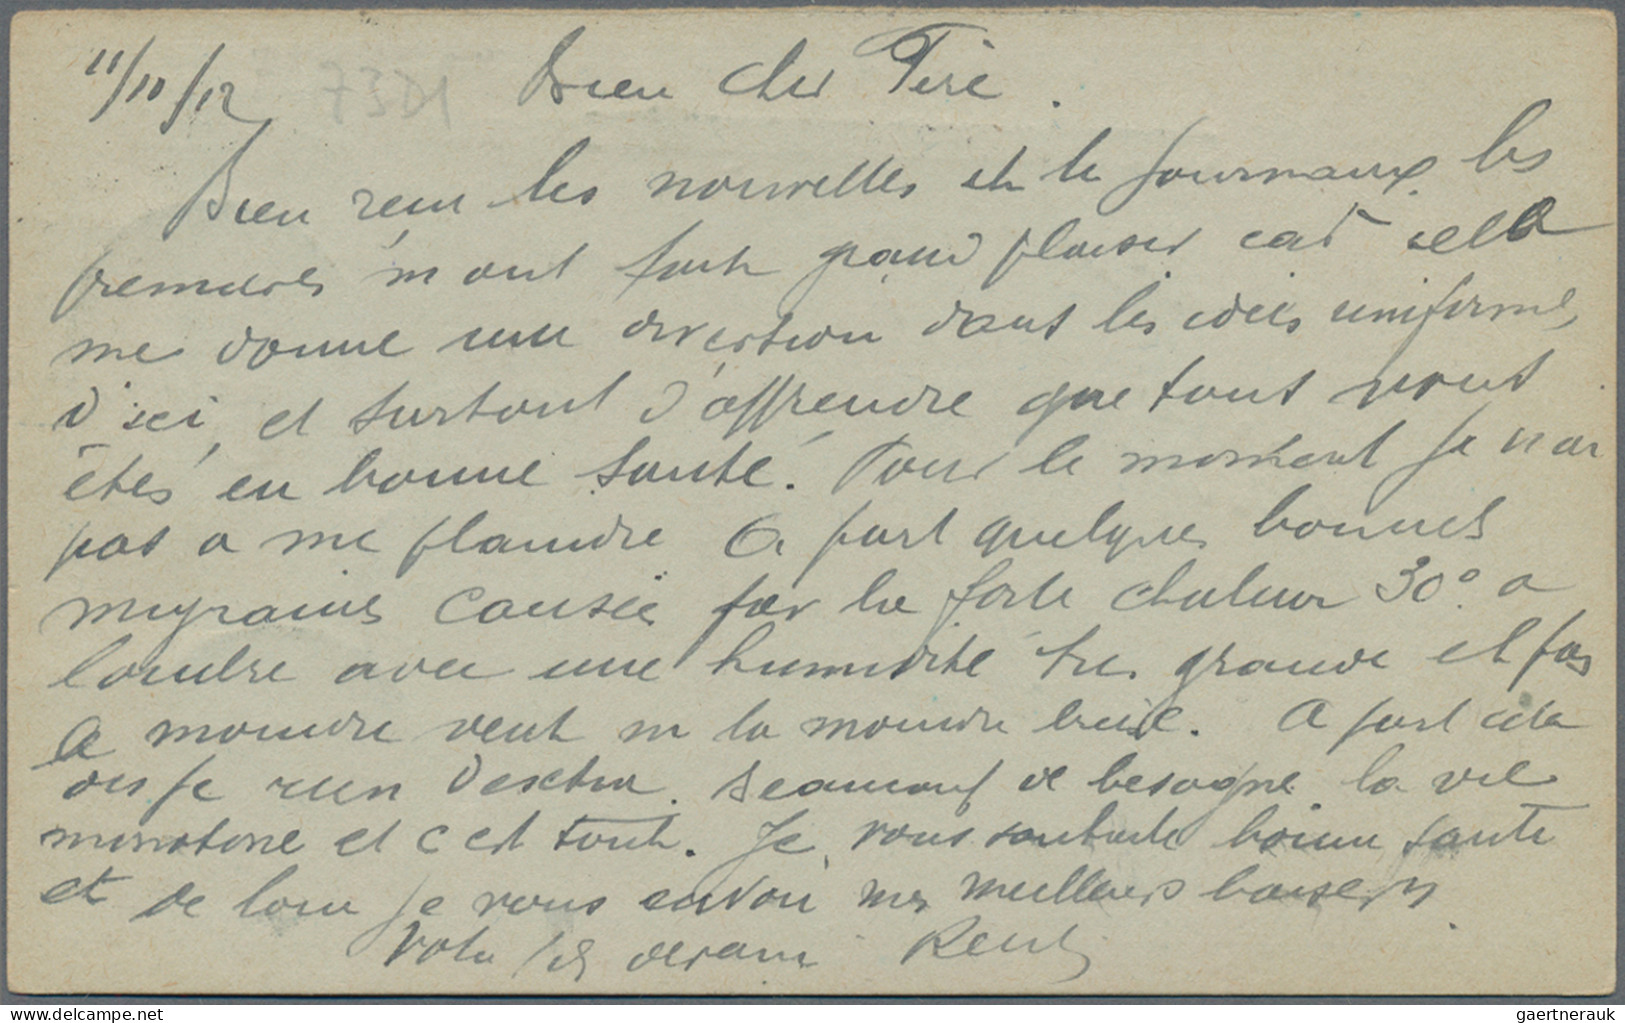 11/10/12 7301 Bien cher Père.
Bien reçu les nouvelles et le journaux les
premières m'ont fait grand plaisir car cella
me donne une diversion dans les idées uniformes
d'ici, et surtout d'apprendre que tout vout
êtes en bonne santé. Pour le moment je n'ai
pas a me plaindre a part quelques bonnes
migraines causée par la forte chaleur 30° a
l'ombre avec une humidité très grande et pas
le moindre vent ni la moindre brise. A part cela
rien d'extra. Beaucoup de besogne la vie
monotone et c'est tout. Je vous souhaite bonne santé
et de loin je vous envoie mes meilleurs baisers
Votre